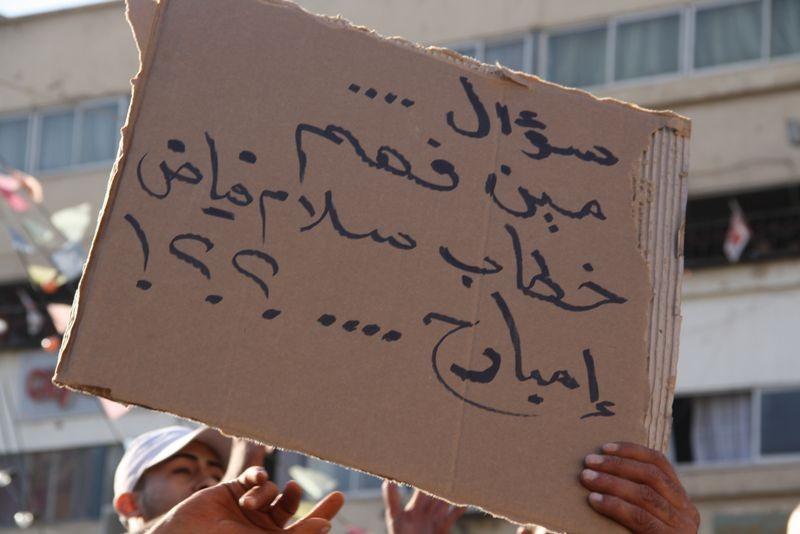 سؤال ....
مين فهم
خطاب سلام فياض
إمبارح .... ؟؟!